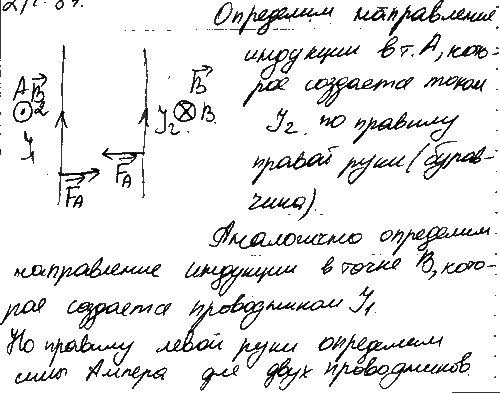 Определим направление
индукции в т. А, кото-
рое создается током
J₂ по правилу
правой руки (бурав-
чика).
Аналогично определим
направление индукции в точке В, кото-
рое создается проводником J₁.
По правилу левой руки определим
силы Ампера для двух проводников.
A B⃗₂
J₁
J₂
B⃗
B
F⃗A
F⃗A